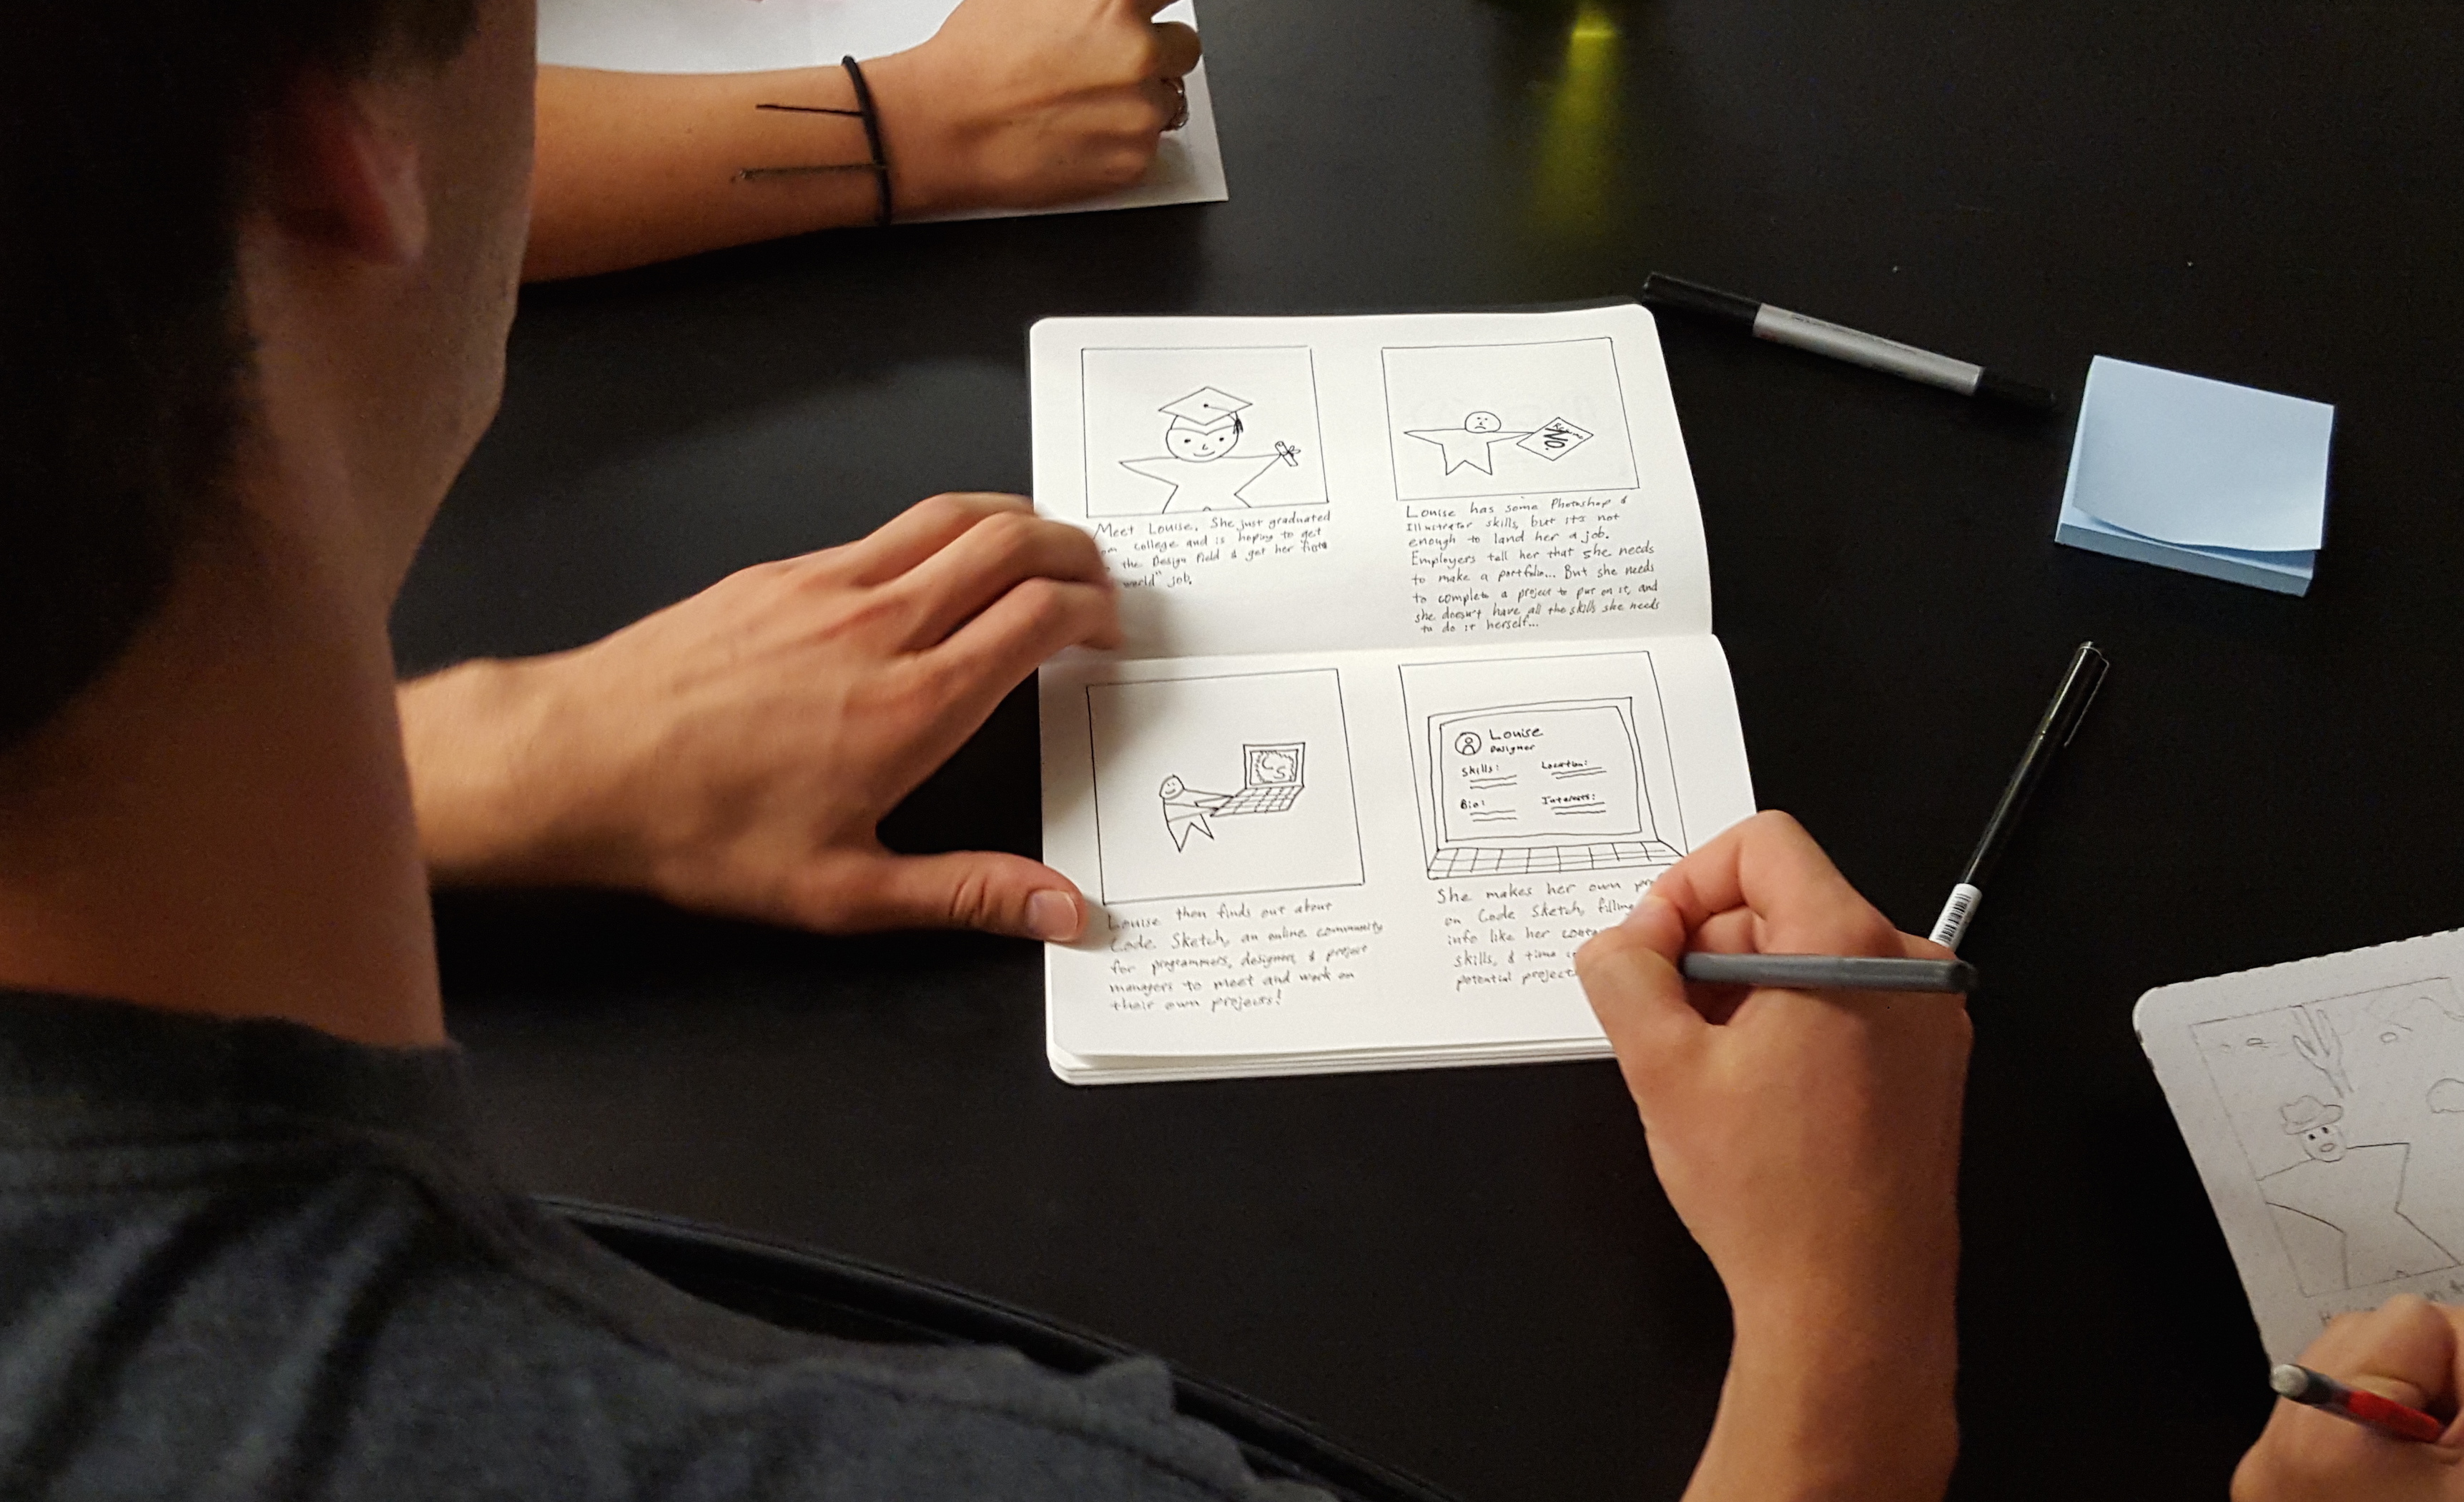 Meet Louise. She just graduated
college and is hoping to get
the Design Field & get her first
world" job.
Resume
NO
Louise has some Photoshop &
Illustrator skills, but it's not
enough to land her a job.
Employers tell her that she needs
to make a portfolio... But she needs
to complete a project to put on it, and
she doesn't have all the skills she needs
to do it herself...
CS
Louise then finds out about
Code Sketch, an online community
for programmers, designers, & project
managers to meet and work on
their own projects!
Louise
Designer
Skills:
Location:
Bio:
Interests:
She makes her own
on Code Sketch, filling
info like her
skills, & time
potential project